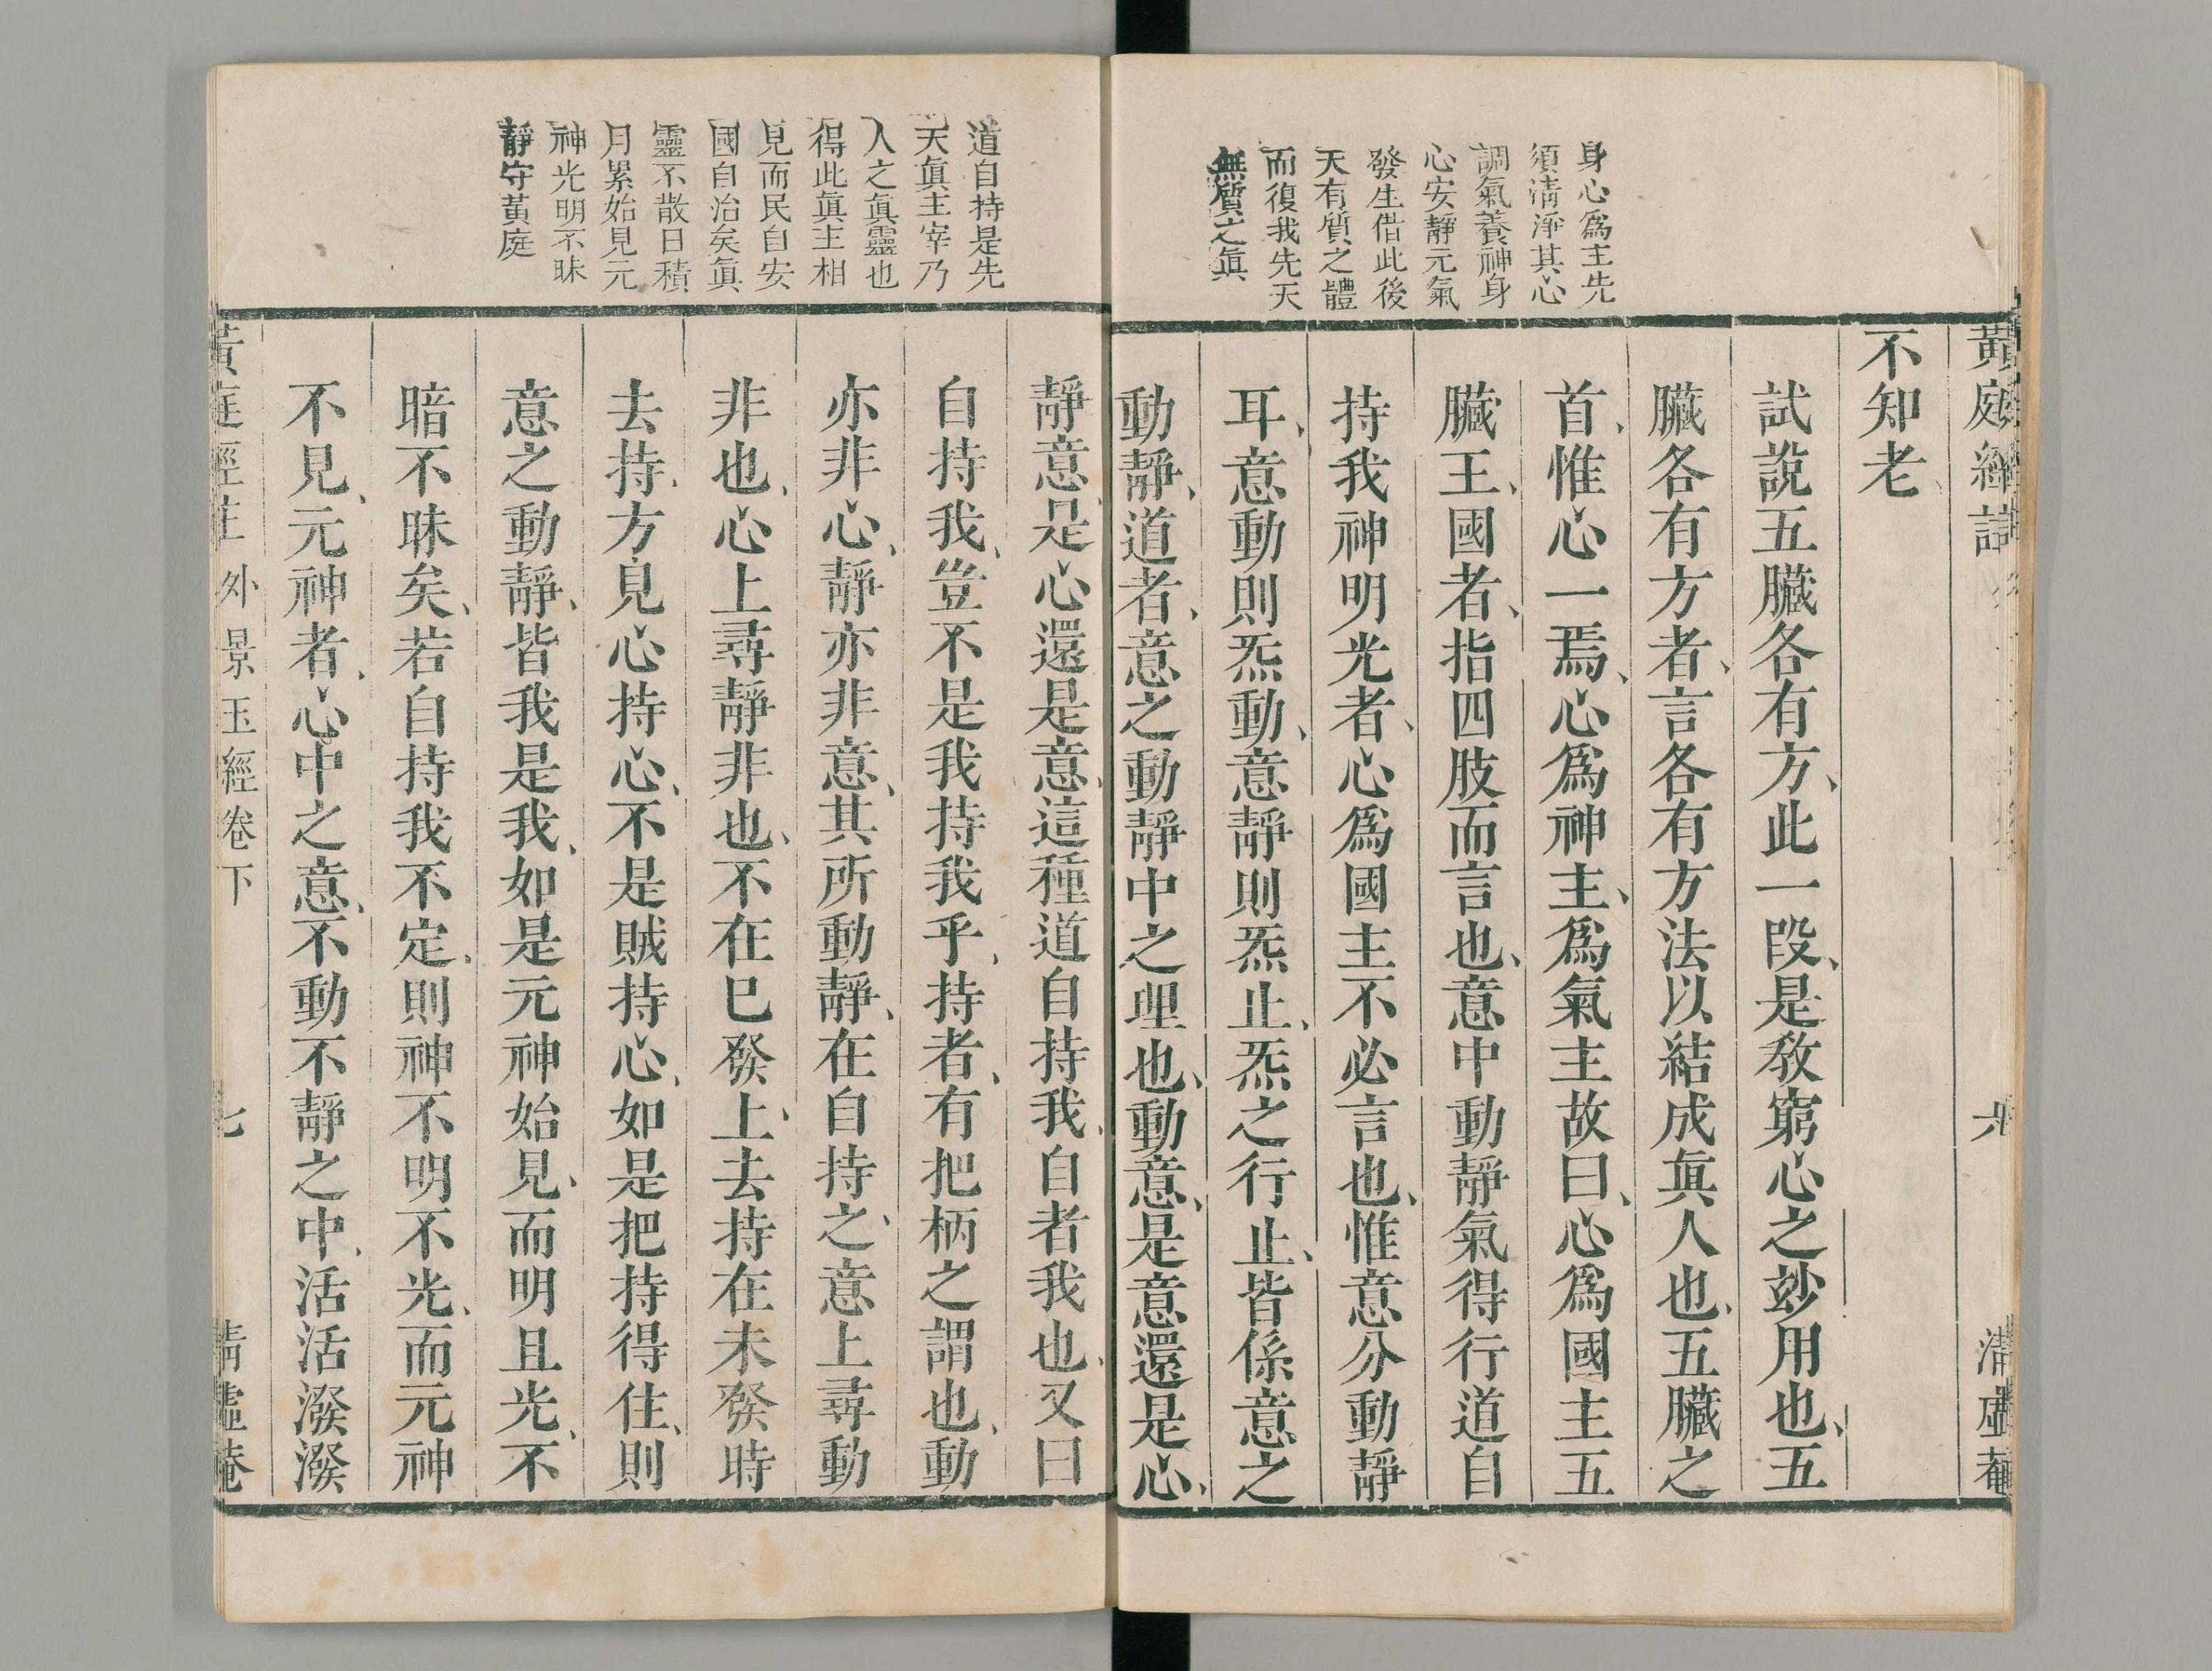 身心為主先
須淸淨其心
調氣養神身
心安靜元氣
發生借此後
天有質之體
而復我先天
無質之眞
黃庭經註
淸虛菴
不知老
試說五臟各有方、此一段、是敎窮心之妙用也、五
臟各有方者、言各有方法以結成眞人也、五臟之
首、惟心一焉、心爲神主、爲氣主故曰、心爲國主五
臟王、國者、指四肢而言也、意中動靜氣得行道自
持我神明光者、心爲國主不必言也、惟意分動靜
耳、意動則炁動、意靜則炁止、炁之行止、皆係意之
動靜、道者、意之動靜中之理也、動意、是意還是心、
道自持是先
天眞主宰乃
人之眞靈也
得此眞主相
見而民自安
國自治矣眞
靈不散日積
月累始見元
神光明不昧
靜守黃庭
靜意、是心還是意、這種道自持我、自者我也、又曰
自持我、豈不是我持我乎、持者、有把柄之謂也、動
亦非心、靜亦非意、其所動靜、在自持之、意上尋動
非也、心上尋靜非也、不在已發上、去持在未發時
去持、方見心持心、不是賊持心、如是把持得住、則
意之動靜、皆我是我、如是元神始見、而明且光、不
暗不昧矣、若自持我不定、則神不明不光、而元神
不見、元神者、心中之意、不動不靜之中、活活潑潑
黃庭經註 外景玉經卷下 七 淸虛菴